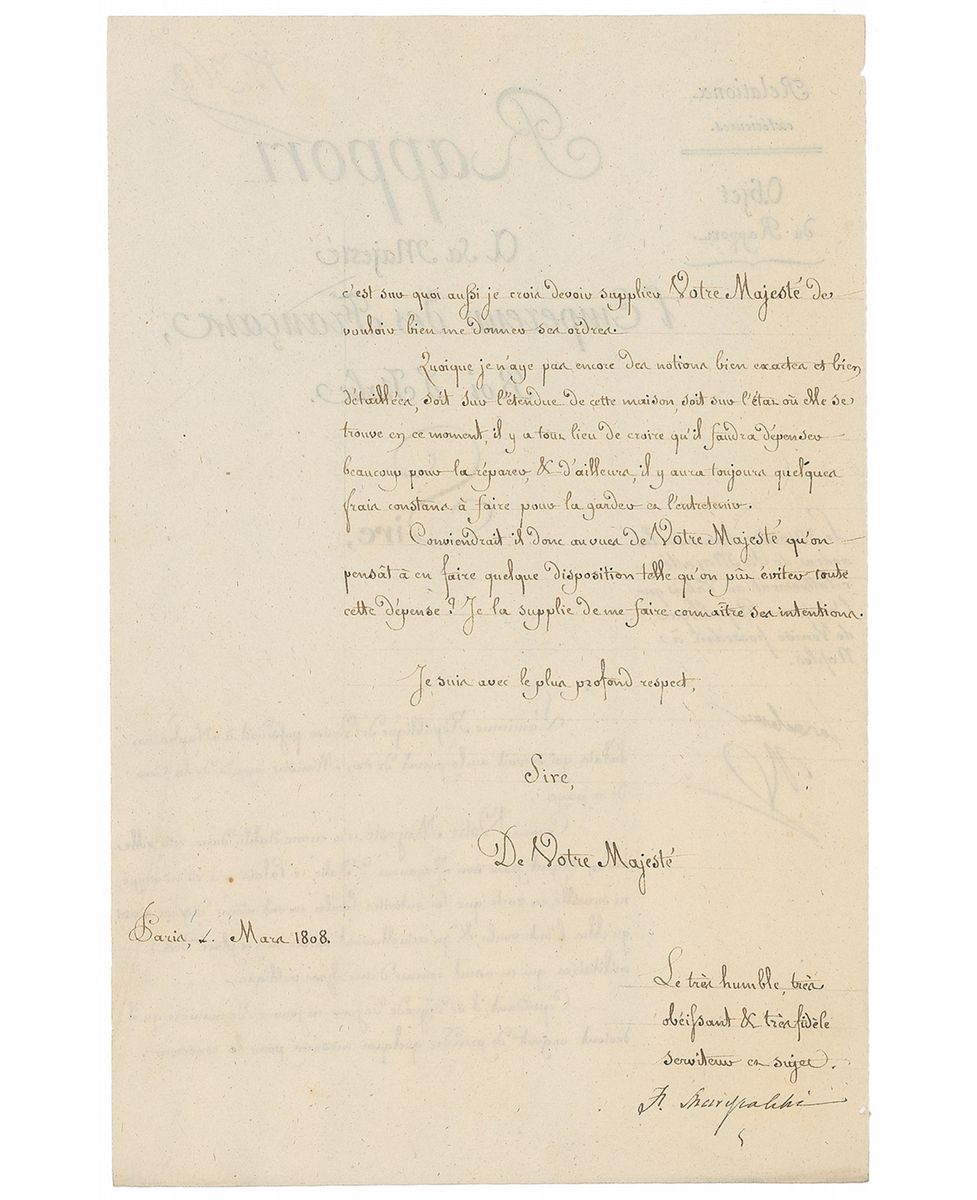 c'est sur quoi aussi je crois devoir supplier Votre Majesté de
vouloir bien me donner ses ordres.
Quoique je n'aye pas encore des notions bien exactes et bien
détaillées, soit sur l'étendue de cette maison, soit sur l'état où elle se
trouve en ce moment, il y a tout lieu de croire qu'il faudra dépenser
beaucoup pour la réparer, & d'ailleurs, il y aura toujours quelques
frais constans à faire pour la garder et l'entretenir.
Conviendrait il donc au vues de Votre Majesté qu'on
pensât à en faire quelque disposition telle qu'on pût éviter toute
cette dépense? Je la supplie de me faire connaître ses intentions.
Je suis avec le plus profond respect,
Sire,
De Votre Majesté
Paris, Mars 1808.
Le très humble, très
obéissant & très fidèle
serviteur et sujet.